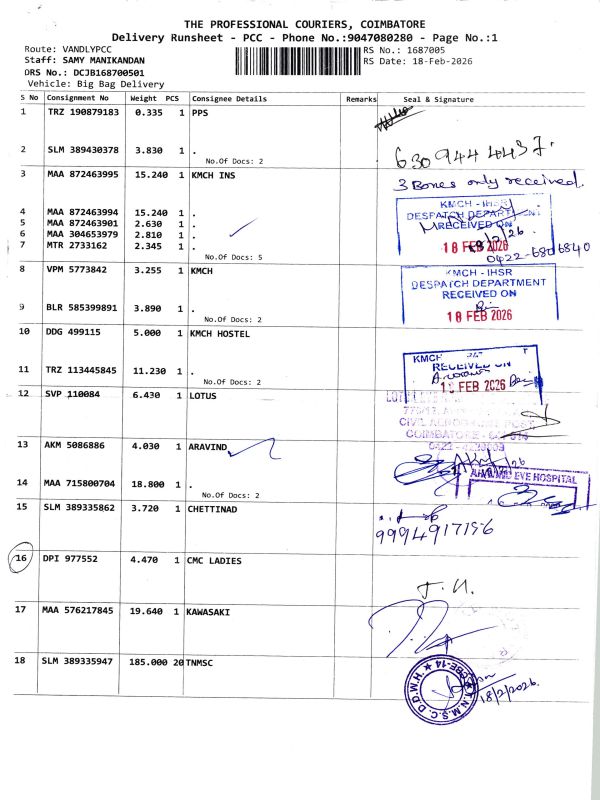 THE PROFESSIONAL COURIERS, COIMBATORE
Delivery Runsheet - PCC - Phone No.:9047080280 - Page No.:1
Route: VANDLYPCC
RS No.: 1687005
Staff: SAMY MANIKANDAN
RS Date: 18-Feb-2026
DRS No.: DCJB168700501
Vehicle: Big Bag Delivery
S No Consignment No Weight PCS Consignee Details Remarks Seal & Signature
1 TRZ 190879183 0.335 1 PPS
2 SLM 389430378 3.830 1 .
630944 4437.
No.Of Docs: 2
3 MAA 872463995 15.240 1 KMCH INS
3 Boxes only received.
KMCH - IHSR
4 MAA 872463994 15.240 1 .
DESPATCH DEPARTMENT
5 MAA 872463901 2.630 1 .
RECEIVED ON
6 MAA 304653979 2.810 1 .
18 FEB 2026
7 MTR 2733162 2.345 1 .
0422-6806840
No.Of Docs: 5
8 VPM 5773842 3.255 1 KMCH
KMCH - IHSR
DESPATCH DEPARTMENT
RECEIVED ON
9 BLR 585399891 3.890 1 .
18 FEB 2026
No.Of Docs: 2
10 DDG 499115 5.000 1 KMCH HOSTEL
KMCH
RECEIVED ON
11 TRZ 113445845 11.230 1 .
18 FEB 2026
No.Of Docs: 2
12 SVP 110084 6.430 1 LOTUS
CIVIL AERODROME POST
COIMBATORE
13 AKM 5086886 4.030 1 ARAVIND
ARAVIND EYE HOSPITAL
14 MAA 715800704 18.800 1 .
No.Of Docs: 2
15 SLM 389335862 3.720 1 CHETTINAD
9994917156
16 DPI 977552 4.470 1 CMC LADIES
17 MAA 576217845 19.640 1 KAWASAKI
18 SLM 389335947 185.000 20 TNMSC
T.N.M.S.C. D.D.W.H. CBE-14
18/2/2026.